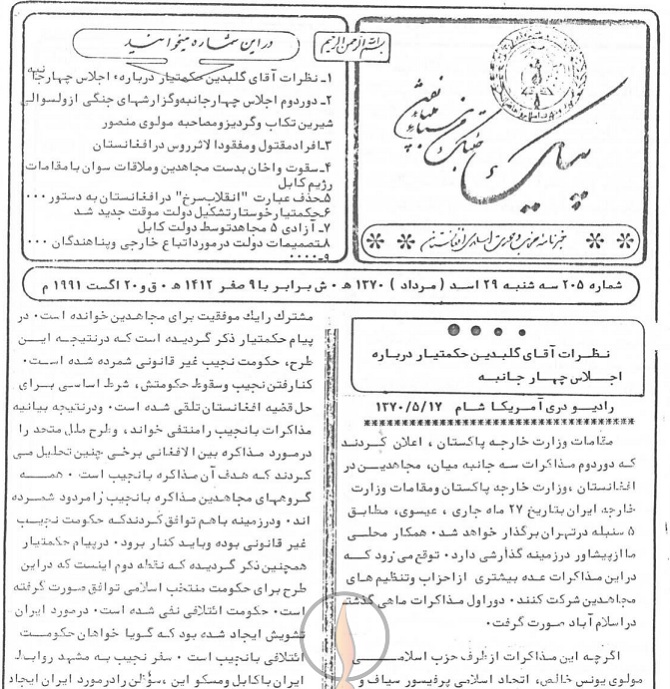 بسم الله الرحمن الرحیم
در این شماره میخوانید
۱ـ نظرات آقای گلبدین حکمتیار درباره، اجلاس چهارجانبه
۲ـ دوردوم اجلاس چهارجانبه وگزارشهای جنگی ازولسوالی
شیرین تکاب وگردیزومصاحبه مولوی منصور
۳ـافرادمقتول ومفقودالاثرروس درافغانستان
۴ـسقوت واخان بدست مجاهدین وملاقات سوان بامقامات
رژیم کابل
۵ـحذف عبارت "انقلاب سرخ" درافغانستان به دستور ۰۰۰
۶ـحکمتیارخوستارتشکیل دولت موقت جدید شد
۷ـ آزادی ۵ مجاهدتوسط دولت کابل
۸ـتصمیمات دولت درمورداتباع خارجی وپناهندگان ۰۰۰
۹ـ ۰۰۰۰
پیام
شماره ۲۰۵ سه شنبه ۲۹ اسد ( مرداد ) ۱۳۷۰ ه ۰ ش برابر با ۹ صفر ۱۴۱۲ ه ۰ ق و ۲۰ اگست ۱۹۹۱ م
نظرات آقای گلبدین حکمتیار درباره
اجلاس چهار جانبه
رادیو دری آمریکا شام ۱۳۷۰/۵/۱۷
مقامات وزارت خارجه پاکستان ، اعلان کردند
که دوردوم مذاکرات سه جانبه میان، مجاهدین در
افغانستان ،وزارت خارجه پاکستان ومقامات وزارت
خارجه ایران بتاریخ ۲۷ ماه جاری ، عیسوی، مطابق
۵ سنبله درتهران برگذار خواهد شد۰ همکار محلی
ماازپیشاور درزمینه گذارشی دارد۰ توقع می رود که
دراین مذاکرات عده بیشتری ازاحزاب وتنظیم های
مجاهدین شرکت کنند۰ دوراول مذاکرات ماهی گذشته
دراسلام آباد صورت گرفت۰
اگرچه این مذاکرات ازطرف حزب اسلامی
مولوی یونس خالص، اتحاد اسلامی پرفیسور سیاف و
مشترك رایك موفقیت برای مجاهدین خوانده است۰ در
پیام حکمتیار ذکر گردیده است که درنتیجه این
طرح، حکومت نجیب غیر قانونی شمرده شده است۰
کنارفتن نجیب وسقوط حکومتش، شرط اساسی برای
حل قضیه افغانستان تلقی شده است۰ ودرنتیجه بیانیه
مذاکرات بانجیب رامنتفی خواند، وطرح ملل متحد را
درمورد مذاکره بین الافغانی برخی چنین تحلیل می
کردند که هدف آن مذاکره بانجیب است ۰ همه
گروههای مجاهدین مذاکره بانجیب رامردود شمرده
اند۰ ودرزمینه باهم توافق کردندکه حکومت نجیب
غیر قانونی بوده وباید کنار برود۰ درپیام حکمتیار
همچنین ذکر گردیده که نقطه دوم اینست که دراین
طرح برای حکومت منتخب اسلامی توافق صورت گرفته
است۰ حکومت ائتلافی نفی شده است۰ درمورد ایران
تشویش ایجاد شده بود که گویا خواهان حکومت
ائتلافی بانجیب است ۰ سفر نجیب به مشهد روابط
ایران باکابل ومسکو این سؤظن رادرمورد ایران ایجاد